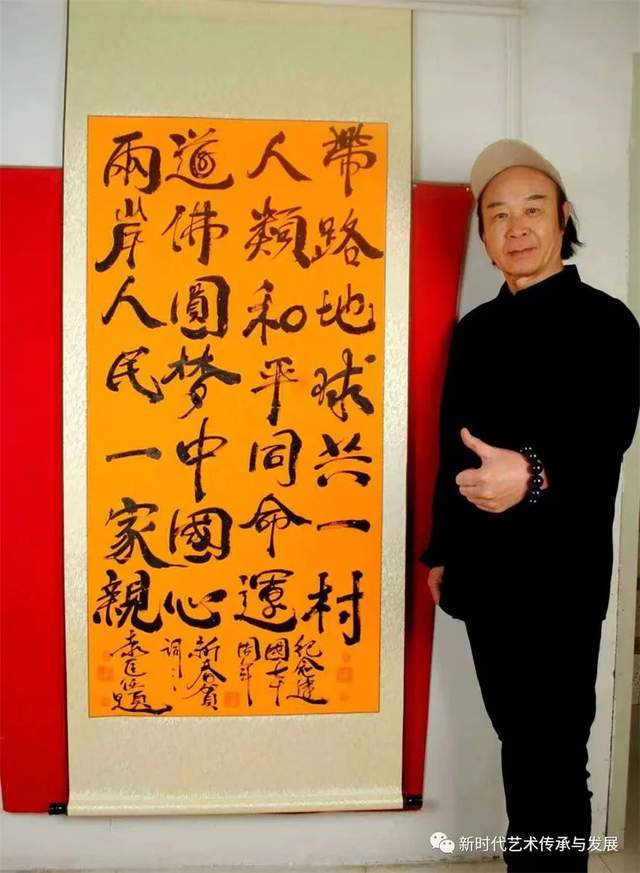 帶路地球共一村
人類和平同命運
道佛圓梦中國心
兩岸人民一家親
紀念建
國七十
周年
新春賀
詞
新时代艺术传承与发展